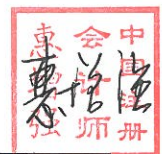 中国注册
会计师
惠增强
惠增强